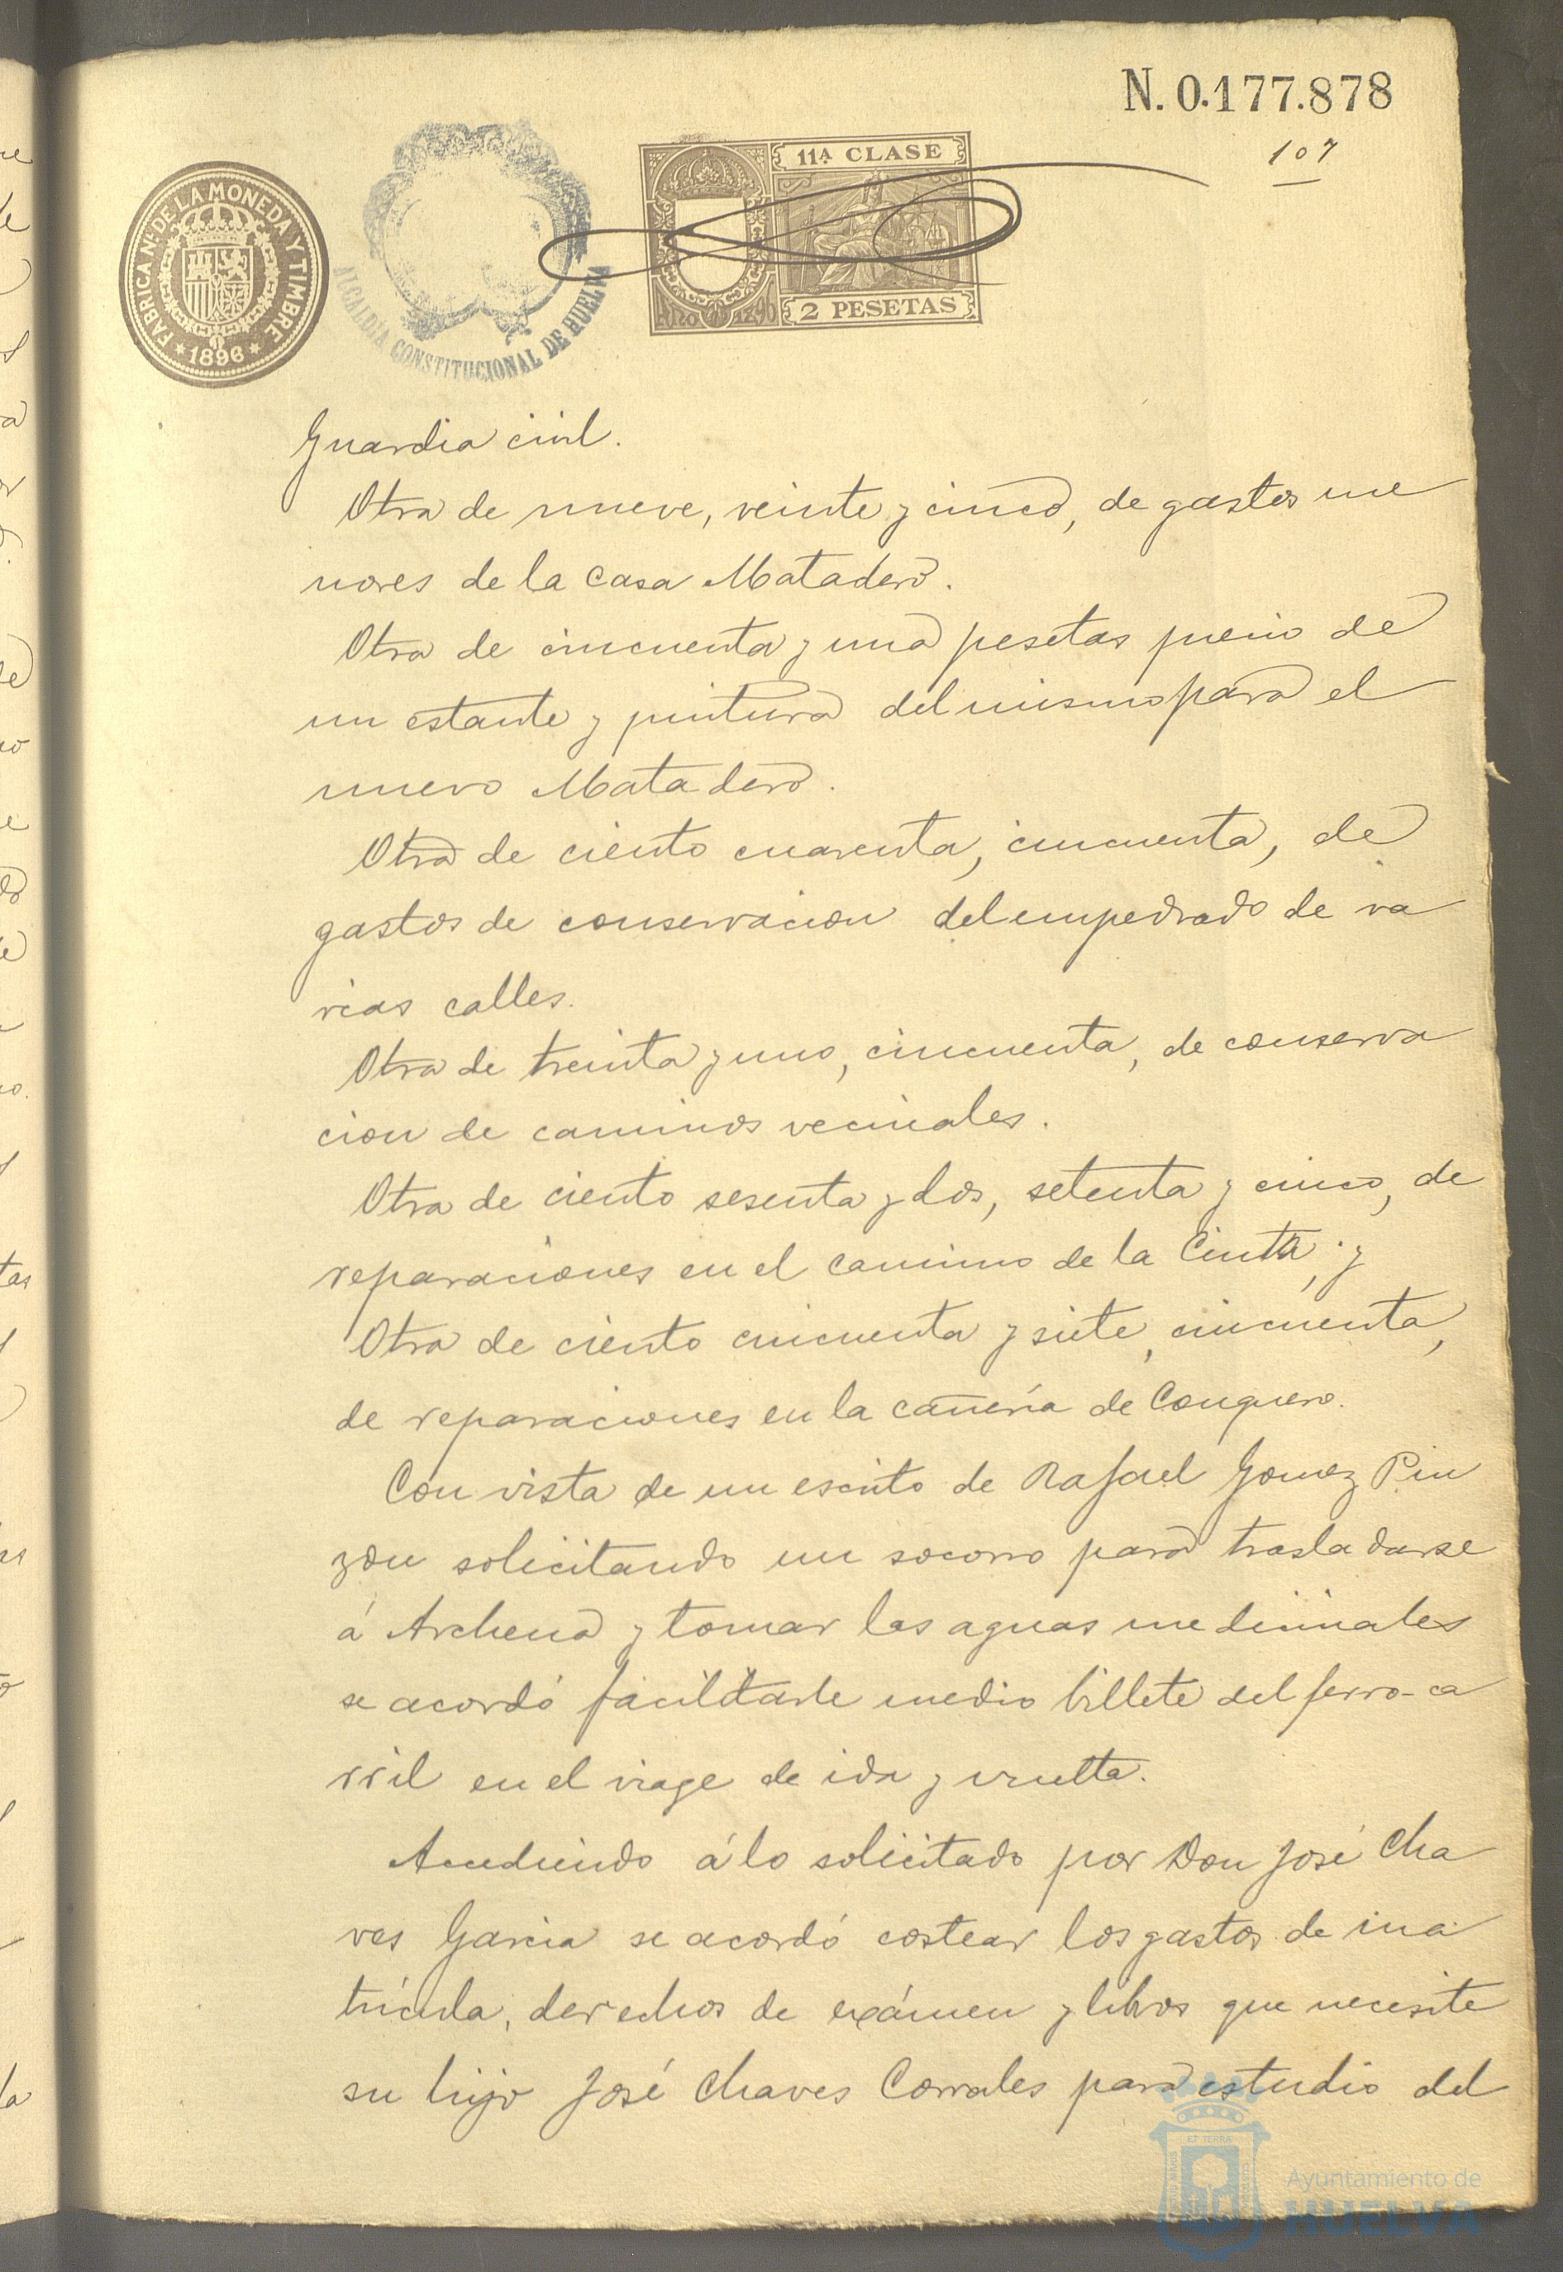 N. 0.177.878
107
FABRICA Nᴸ DE LA MONEDA Y TIMBRE
1896
ALCALDIA CONSTITUCIONAL DE HUELVA
11ᴬ CLASE
2 PESETAS
Guardia civil.
Otra de nueve, veinte y cinco, de gastos me
nores de la Casa Matadero.
Otra de cincuenta y una pesetas precio de
un estante y pintura del mismo para el
nuevo Matadero.
Otra de ciento cuarenta, cincuenta, de
gastos de conservacion del empedrado de va
rias calles.
Otra de treinta y uno, cincuenta, de conserva
cion de caminos vecinales.
Otra de ciento sesenta y dos, setenta y cinco, de
reparaciones en el camino de la Cinta; y
Otra de ciento cincuenta y siete, cincuenta,
de reparaciones en la cañería de Conquero.
Con vista de un escrito de Rafael Gomez Pin
zon solicitando un socorro para trasladarse
á Archena y tomar las aguas medicinales
se acordó facilitarle medio billete del ferro-ca
rril en el viage de ida y vuelta.
Accediendo á lo solicitado por Don José Cha
ves Garcia se acordó costear los gastos de ma
trícula, derechos de exámen y libros que necesite
su hijo José Chaves Corrales para estudio del
Ayuntamiento de
HUELVA